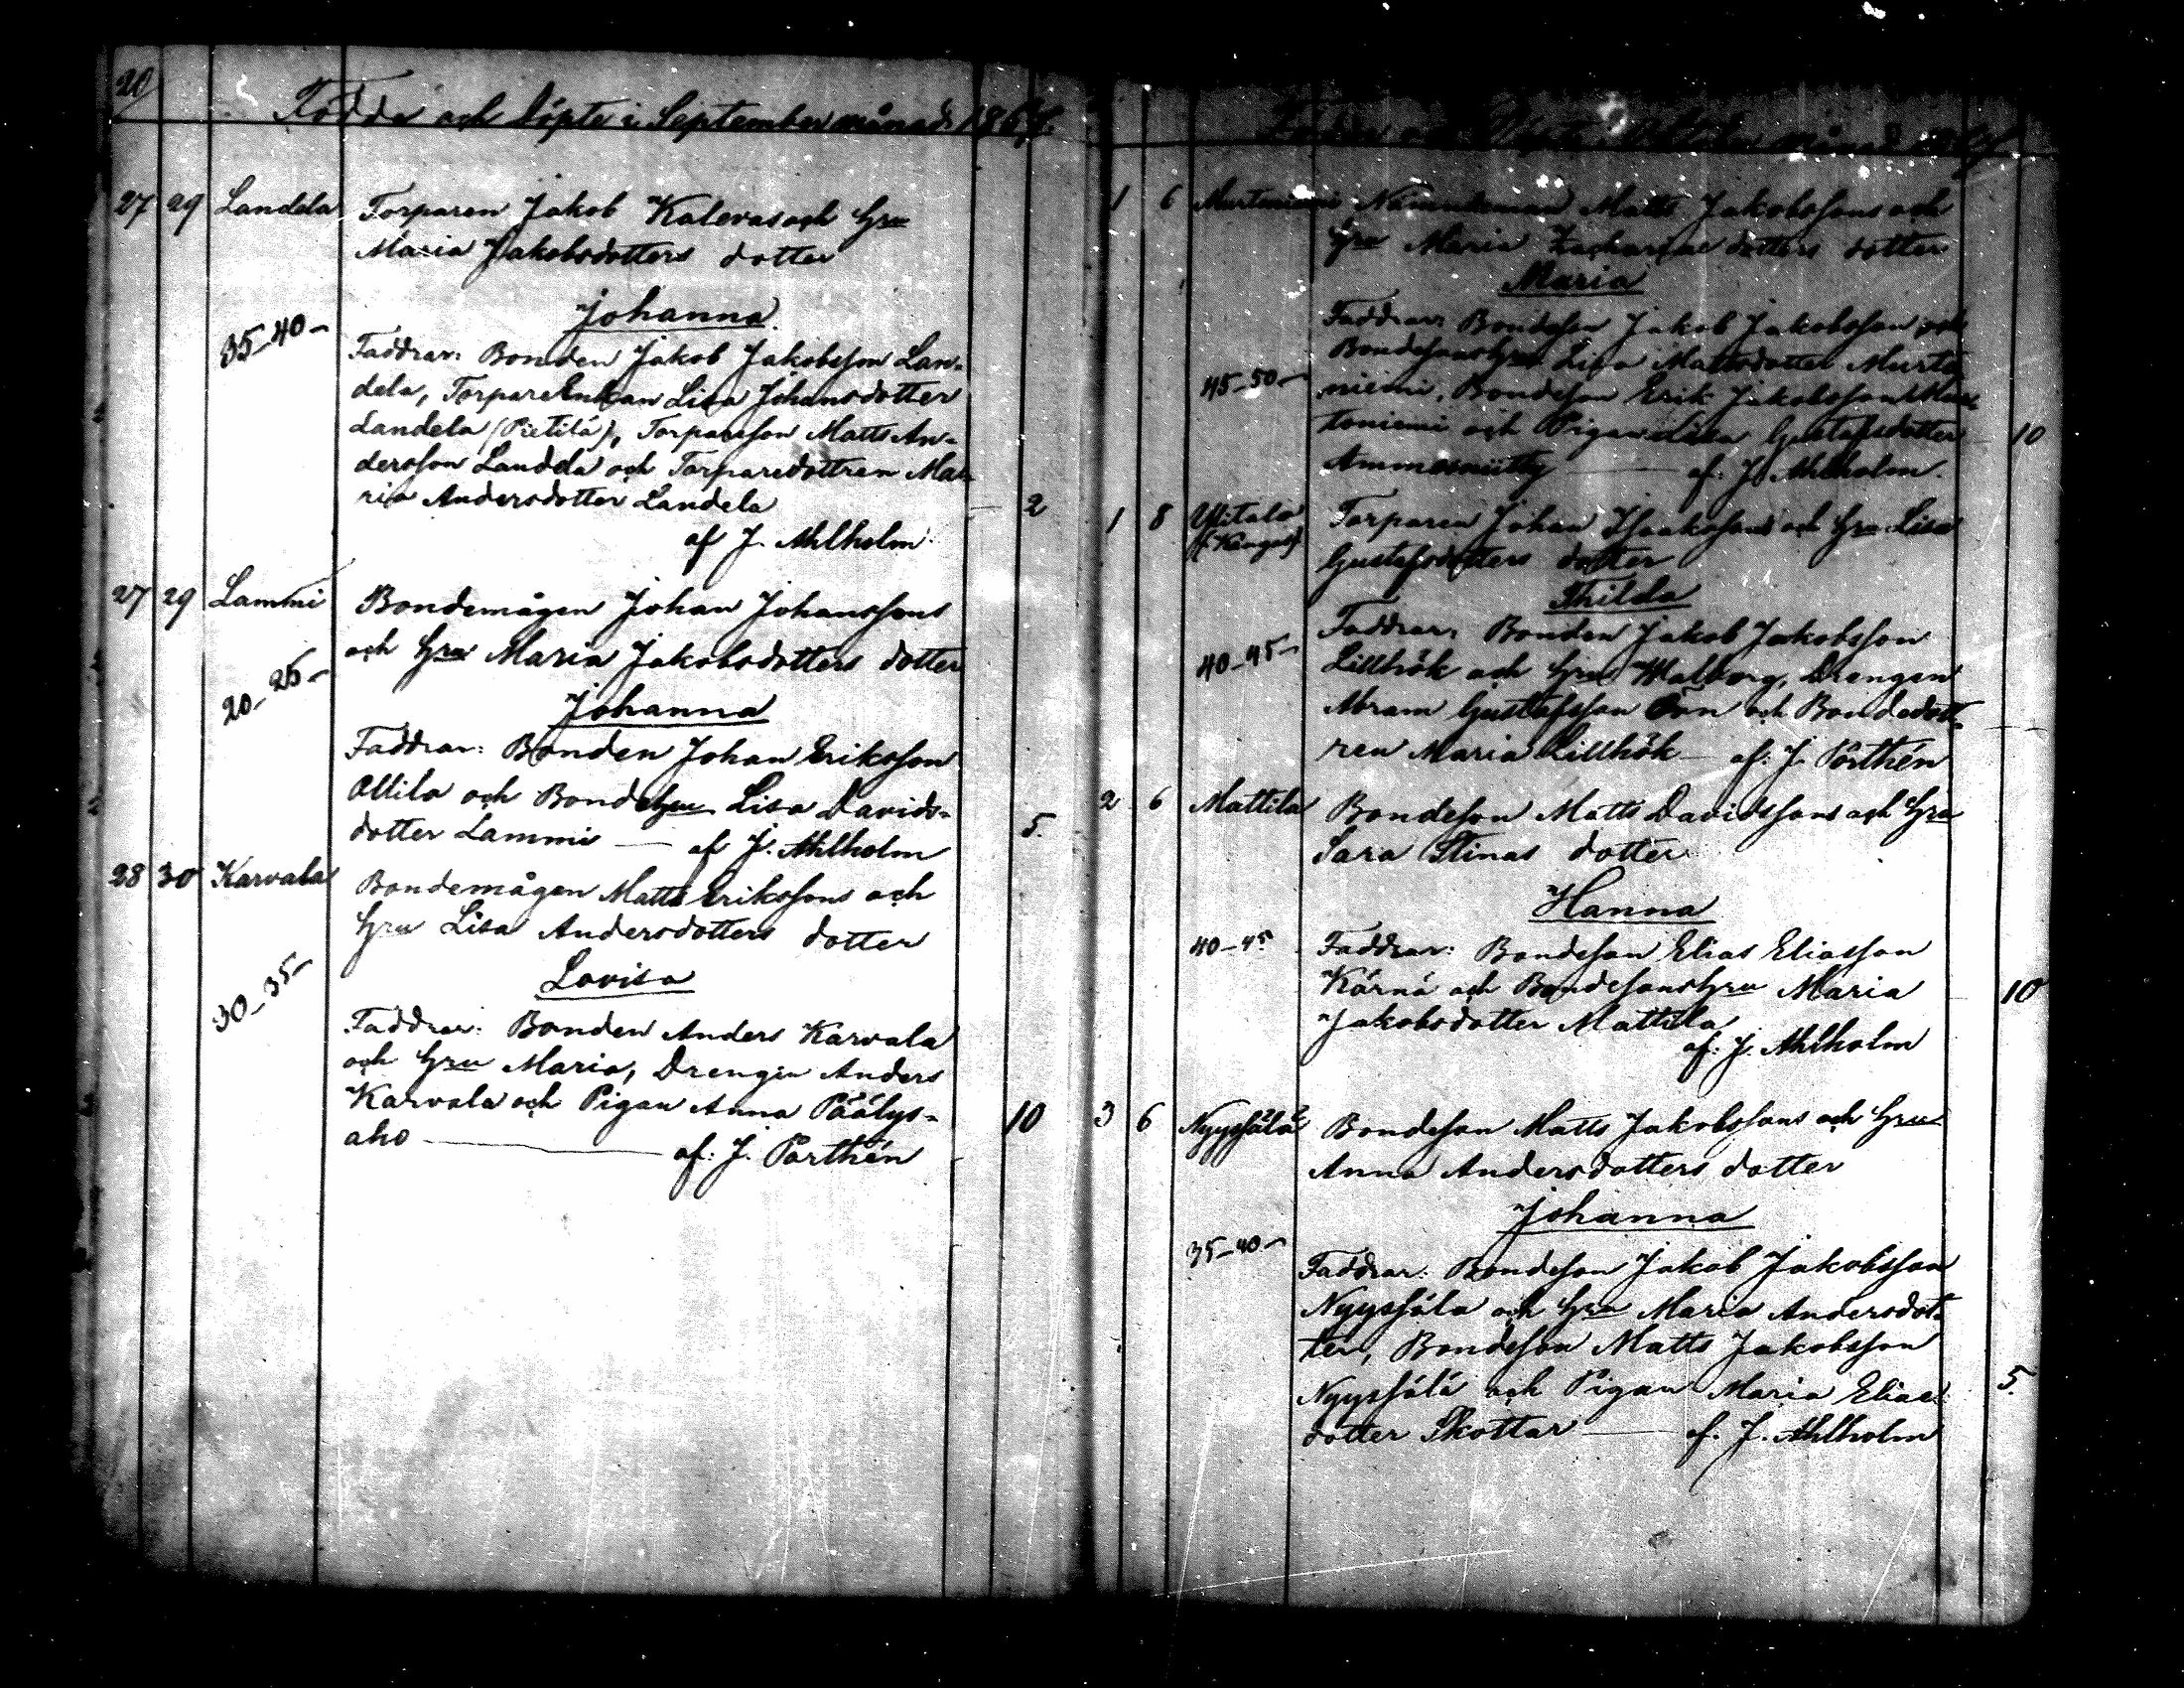 20
Födde och döpte i September månad 1864.
27 29 Landela Torparen Jakob Kalevas och hru
Maria Jakobsdotters dotter
Johanna
35-40-
Faddrar: Bonden Jakob Jakobsson Lan-
dela, Torpareenkan Lisa Johansdotter
Landela (Pietilä), Torpareson Matts An-
dersson Landela och Torparedottren Ma-
ria Andersdotter Landela 2
af J. Ahlholm
27 29 Lammi Bondemågen Johan Johanssons
och hru Maria Jakobsdotters dotter
20-25-
Johanna
Faddrar: Bonden Johan Eriksson
Ollila och Bondehru Lisa Davids-
dotter Lammi — af J. Ahlholm 5.
28 30 Karvala Bondemågen Matts Erikssons och
hru Lisa Andersdotters dotter
Lovisa
30-35-
Faddrar: Bonden Anders Karvala
och hru Maria, Drengen Anders
Karvala och Pigan Anna Päälys-
aho — af: J. Porthén 10
Födde och Döpte i Oktober månad
1 6 Murtoniemi Nämndeman Matts Jakobssons och
hru Maria Zachariae dotters dotter
Maria
Faddrar: Bondeson Jakob Jakobsson och
Bondesonshru Lisa Mattsdotter Murto-
45-50-
niemi, Bondeson Erik Jakobsson Mur-
toniemi och Pigan Lisa Gustafsdotter 10
af: J. Ahlholm.
1 8 Ylitalo Torparen Johan Isakssons och hru Lisa
Gustafsdotters dotter
Thilda
Faddrar: Bonden Jakob Jakobsson
40-45-
Lillhök och hru Walborg, Drengen
Abram Gustafsson och Bondedott-
ren Maria Lillhök — af: J. Porthén
2 6 Mattila Bondeson Matts Davidssons och hru
Sara Stinas dotter
Hanna
40-45
Faddrar: Bondeson Elias Eliasson
Kärnä och Bondesonshru Maria 10
Jakobsdotter Mattila
af: J. Ahlholm
3 6 Nyyssälä Bondeson Matts Jakobssons och hru
Anna Andersdotters dotter
Johanna
35-40-
Faddrar: Bondeson Jakob Jakobsson
Nyyssälä och hru Maria Andersdot-
ter, Bondeson Matts Jakobsson
Nyyssälä och Pigan Maria Elias- 5.
dotter Skottar — af. J. Ahlholm